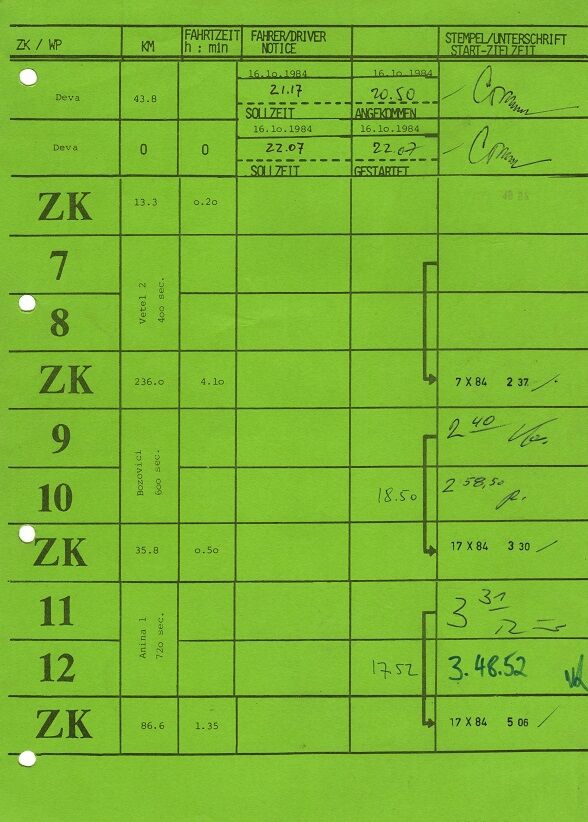 ZK / WP KM FAHRTZEIT h : min FAHRER/DRIVER NOTICE STEMPEL/UNTERSCHRIFT START-ZIELZEIT
Deva 43.8 16.1o.1984 21.17 SOLLZEIT 16.1o.1984 20.50 ANGEKOMMEN
Deva 0 0 16.1o.1984 22.07 SOLLZEIT 16.1o.1984 22.07 GESTARTET
ZK 13.3 o.2o
7
Vetel 2
4oo sec.
8
ZK 236.o 4.1o 7 X 84 2 37
9 2 40
Bozovici
6oo sec.
10 18.50 2 58,50
ZK 35.8 o.5o 17 X 84 3 30
11 3 31
Anina 1
72o sec.
12 17.52 3.48.52
ZK 86.6 1.35 17 X 84 5 06